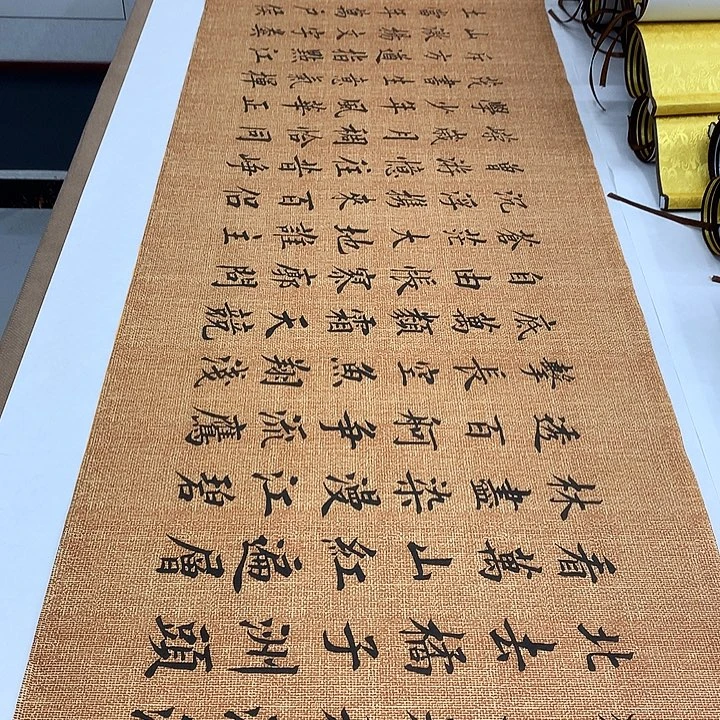 北去橘子洲頭
看萬山紅遍層
林盡染漫江碧
透百舸爭流鷹
擊長空魚翔淺
底萬類霜天競
自由悵寥廓問
蒼茫大地誰主
沉浮攜來百侶
曾游憶往昔崢
嶸歲月稠恰同
學少年風華正
茂書生意氣揮
斥方遒指點江
山激揚文字糞
土當年萬户侯